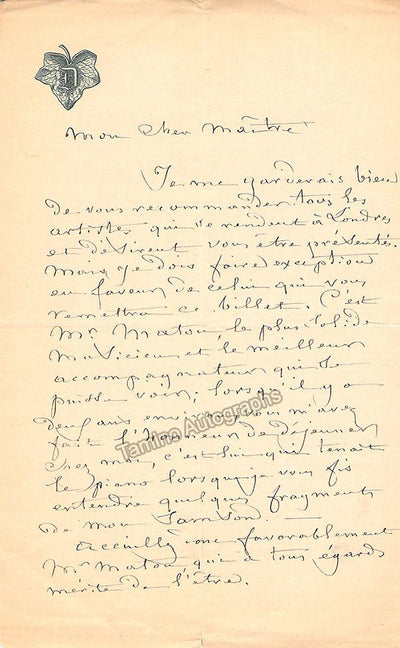 D
Mon cher Maître
Je me garderais bien
de vous recommander tous les
artistes qui se rendent à Londres
et désirent vous être présentés.
Mais je dois faire exception
en faveur de celui qui vous
remettra ce billet. C'est
Mr Maton, le plus solide
musicien et le meilleur
accompagnateur qui se
puisse voir; lorsqu'il y a
deux ans environ vous m'avez
fait l'honneur de déjeuner
chez moi, c'est lui qui tenait
le piano lorsque je vous fis
entendre quelques fragments
de mon Samson. —
Accueillez donc favorablement
Mr Maton, qui à tous égards
mérite de l'être.
Tamino Autographs